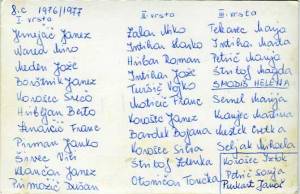 8.c 1976/1977
I. vrsta
Janez
Wared Niko
Meden Jože
Borštnik Janez
Korošec Srečo
Hribljan Berto
Franc
Pirman Janko
Širec Niti
Klančar Janez
Primožič Dušan
II. vrsta
Zalan Niko
Intihar Stanko
Hribar Roman
Intihar Jože
Turšič Vojko
Motricič Franc
Korošec Janez
Bavdek Bojana
Korošec Silva
Štritof Zdenka
Otoničar Tončka
III. vrsta
Tekavec Marija
Intihar Marta
Petrič Marija
Štritof Magda
SMODIS HELENA
Semel Marija
Kranjec Martina
Mestek Cvetka
Seljak Nikola
Korošec Iztok
Petrič Sonja
Punkart Janez